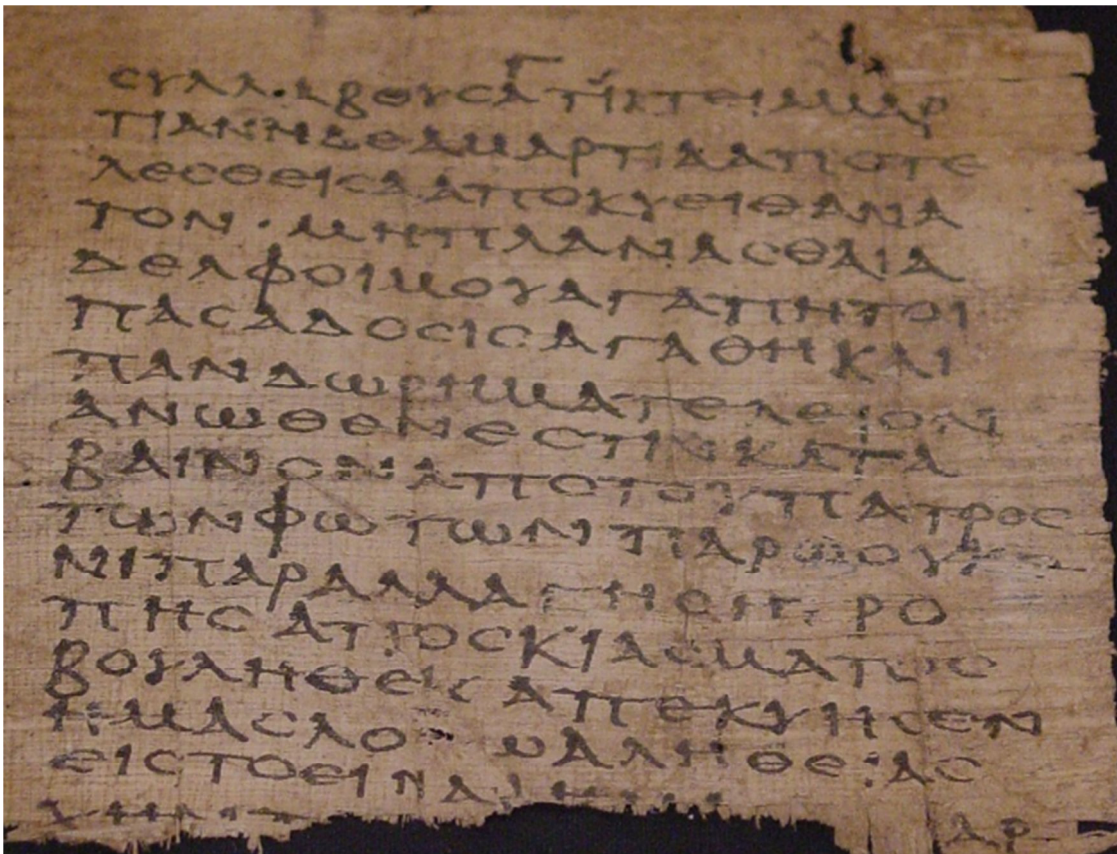 Γ
ϹΥΛΛΑΒΟΥϹΑΤΙΚΤΕΙΑΜΑΡ
ΤΙΑΝΗΔΕΑΜΑΡΤΙΑΑΠΟΤΕ
ΛΕϹΘΕΙϹΑΑΠΟΚΥΕΙΘΑΝΑ
ΤΟΝ · ΜΗΠΛΑΝΑϹΘΑΙΑ
ΔΕΛΦΟΙΜΟΥΑΓΑΠΗΤΟΙ
ΠΑϹΑΔΟϹΙϹΑΓΑΘΗΚΑΙ
ΠΑΝΔΩΡΗΜΑΤΕΛΕΙΟΝ
ΑΝΩΘΕΝΕϹΤΙΝΚΑΤΑ
ΒΑΙΝΟΝΑΠΟΤΟΥΠΑΤΡΟϹ
ΤΩΝΦΩΤΩΝΠΑΡΩΟΥΚ
ΝΙΠΑΡΑΛΛΑΓΗϹΗΤΡΟ
ΠΗϹΑΠΟϹΚΙΑϹΜΑΤΟϹ
ΒΟΥΛΗΘΕΙϹΑΠΕΚΥΗϹΕΝ
ΗΜΑϹΛΟ ΩΑΛΗΘΕΙΑϹ
ΕΙϹΤΟΕΙΝΑΙΗ
ΑΡ